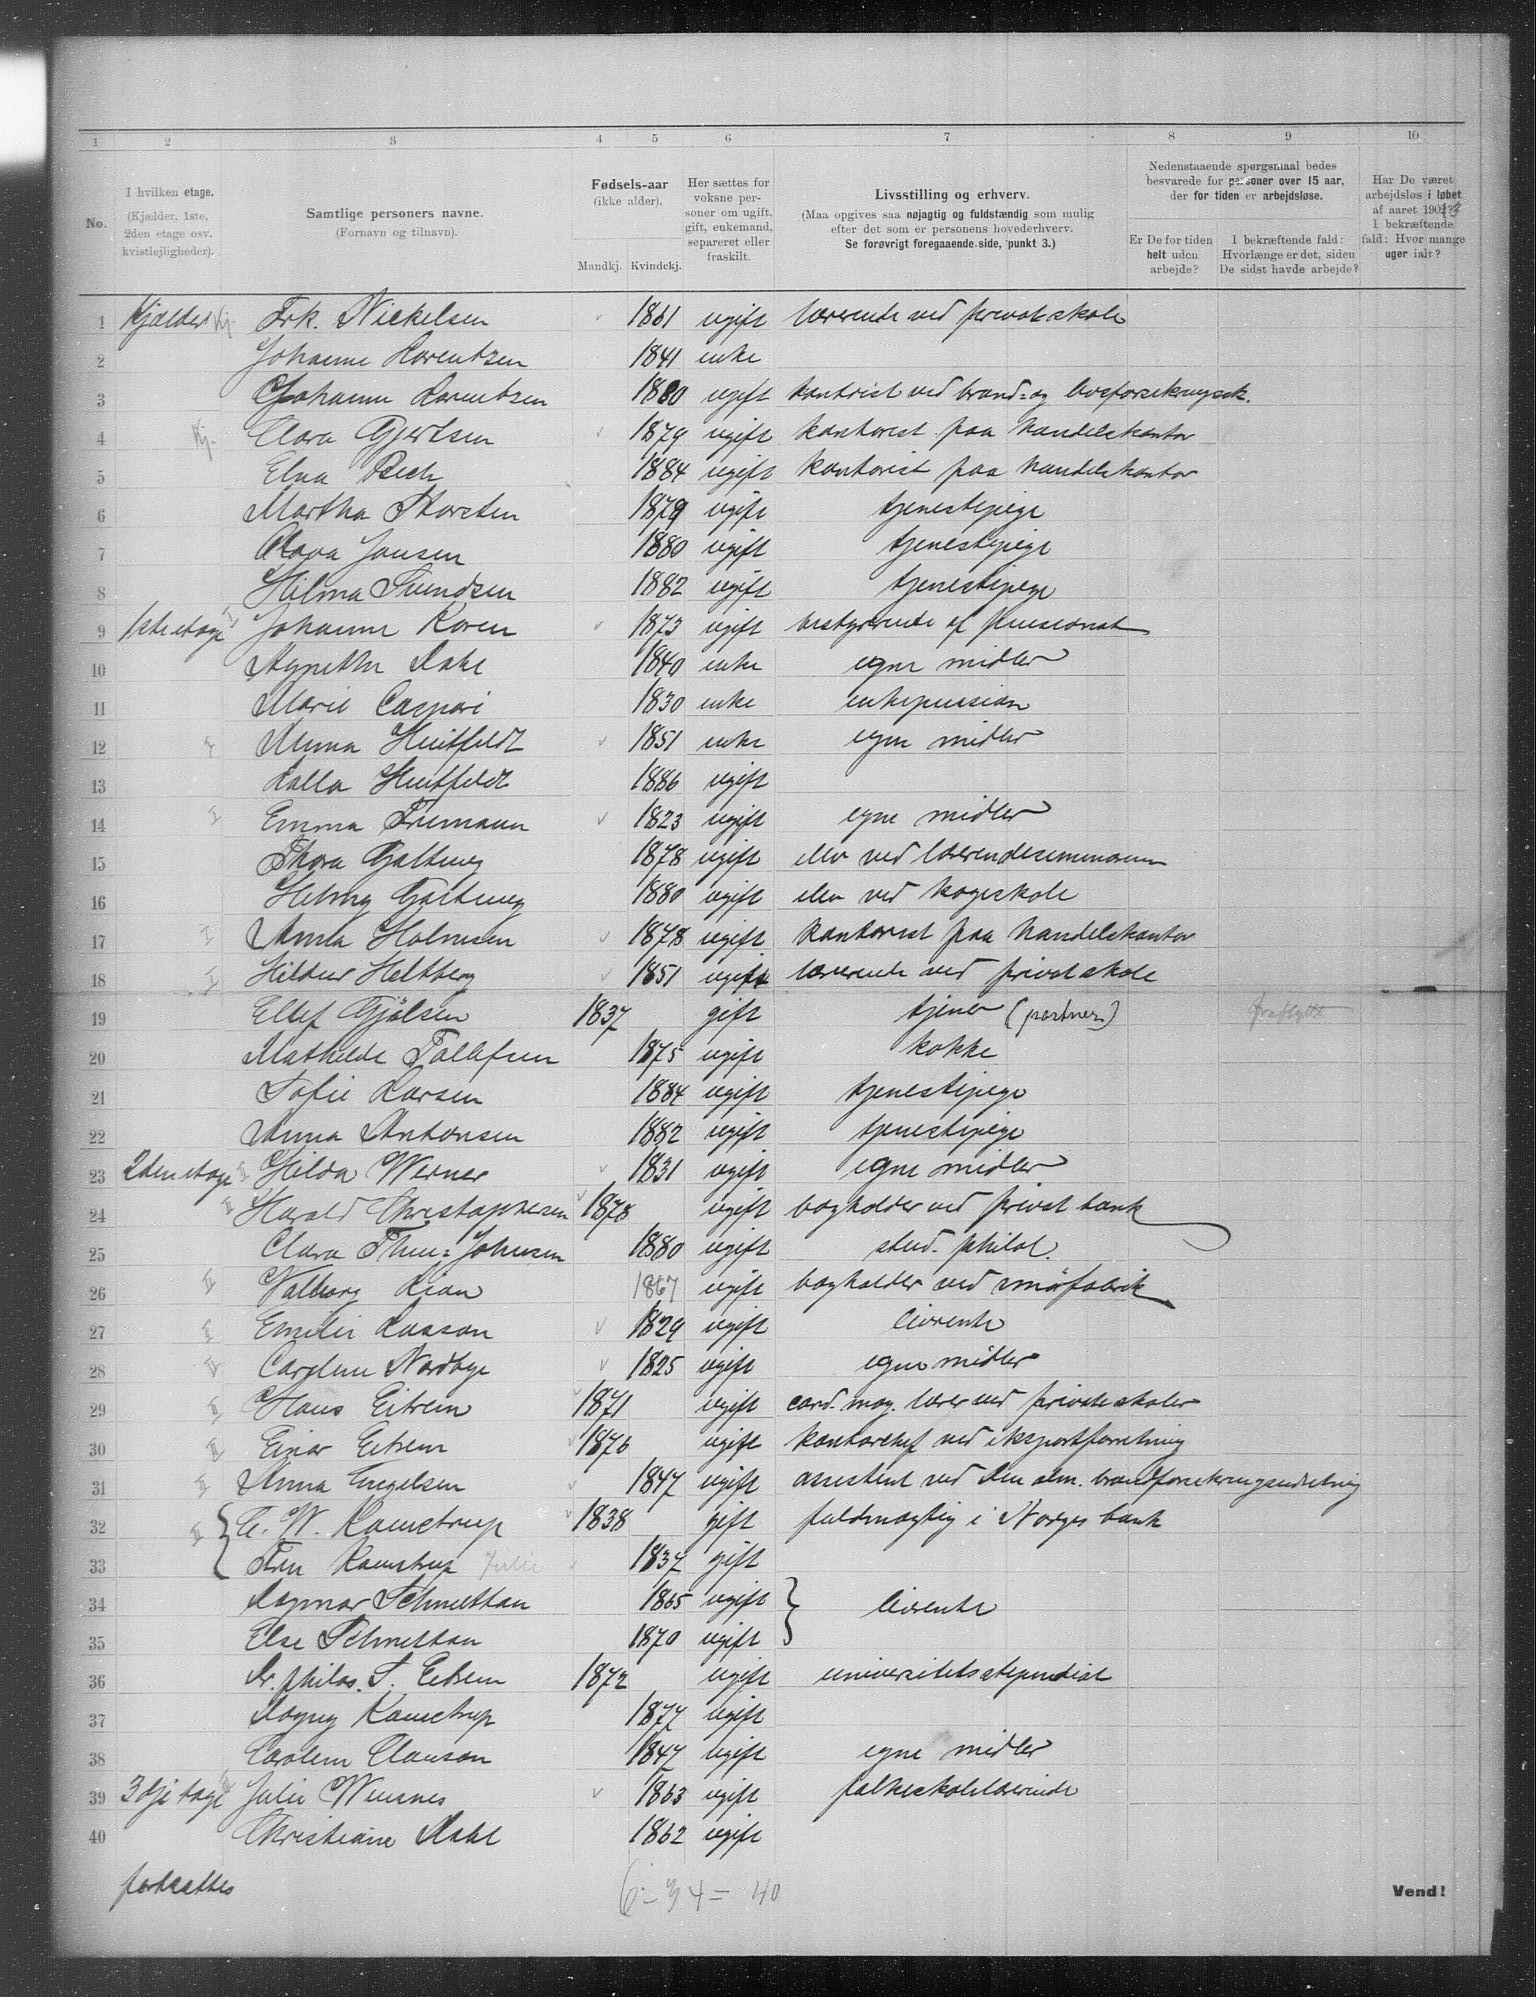 1 2 3 4 5 6 7 8 9 10
No.
I hvilken etage.
(Kjælder, 1ste,
2den etage osv.
kvistlejligheder).
Samtlige personers navne.
(Fornavn og tilnavn).
Fødsels-aar
(ikke alder).
Mandkj. Kvindekj.
Her sættes for
voksne per-
soner om ugift,
gift, enkemand,
separeret eller
fraskilt.
Livsstilling og erhverv.
(Maa opgives saa nøjagtig og fuldstændig som mulig
efter det som er personens hovederhverv.
Se forøvrigt foregaaende side, punkt 3.)
Nedenstaaende spørgsmaal bedes
besvarede for personer over 15 aar,
der for tiden er arbejdsløse.
Er De for tiden
helt uden
arbejde?
I bekræftende fald:
Hvorlænge er det, siden
De sidst havde arbejde?
Har De været
arbejdsløs i løbet
af aaret 1903?
I bekræftende
fald: Hvor mange
uger ialt?
1 Kjælder Kj. Frk. Nickelsen 1861 ugift lærerinde ved privat skole
2 Johanne Lorentzen 1841 enke
3 Johanne Lorentzen 1880 ugift kontorist ved brand- og livsforsikringssk.
4 Kj. Clara Gjertsen 1879 ugift kontorist paa handelskontor
5 Elna Rich 1884 ugift kontorist paa handelskontor
6 Martha Thorsten 1879 ugift tjenestepige
7 Clara Jansen 1880 ugift tjenestepige
8 Hilma Svendsen 1882 ugift tjenestepige
9 1ste etage I Johanne Koren 1873 ugift bestyrerinde af pensionat
10 Agnethe Dahl 1840 enke egne midler
11 Marie Caspari 1830 enke enkepension
12 I Anna Huitfeldt 1851 enke egne midler
13 Lalla Huitfeldt 1886 ugift
14 I Emma Friemann 1823 ugift egne midler
15 Thora Galtung 1878 ugift elev ved lærerindeseminarium
16 Helong Galtung 1880 ugift elev ved kogeskole
17 I Anna Holmsen 1878 ugift kontorist paa handelskontor
18 I Hildur Heltberg 1851 ugift lærerinde ved privat skole
19 Ellef Gjølsen 1837 gift tjener (portner) fraflyttet
20 Mathilde Tollefsen 1875 ugift kokke
21 Sofie Larsen 1884 ugift tjenestepige
22 Anna Antonsen 1882 ugift tjenestepige
23 2den etage II Hilda Werner 1831 ugift egne midler
24 II Harald Christophersen 1878 ugift bogholder ved privat bank
25 Clara Thue-Johnsen 1880 ugift stud. philol.
26 II Valborg Lian 1867 ugift bogholder ved smørfabrik
27 II Emilie Lasson 1829 ugift livrente
28 II Caroline Nordbye 1825 ugift egne midler
29 II Hans Eitrem 1871 ugift cand. mag. lærer ved private skoler
30 II Einar Eitrem 1876 ugift kontorchef ved eksportforretning
31 II Anna Engelsen 1847 ugift assistent ved den alm. brandforsikringsindretning
32 II C. W. Kamstrup 1838 gift fuldmægtig i Norges bank
33 Fru Kamstrup Julie 1837 gift
34 Dagmar Schmettau 1865 ugift livrente
35 Else Schmettau 1870 ugift
36 Dr. philos. S. Eitrem 1872 ugift universitetsstipendiat
37 Dagny Kamstrup 1877 ugift
38 Caroline Clauson 1847 ugift egne midler
39 3dje etage Julie Wiesnes 1863 ugift folkeskolelærerinde
40 Christiane Dahl 1862 ugift
fortsættes
6 - 34 = 40
Vend!